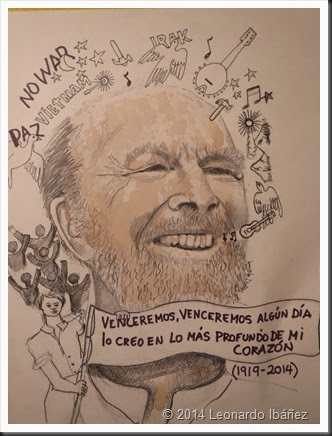 NO WAR
VIETNAM
IRAK
PAZ
VENCEREMOS, VENCEREMOS ALGÚN DÍA
lo CREO EN LO MÁS PROFUNDO DE MI
CORAZÓN
(1919-2014)
© 2014 Leonardo Ibáñez